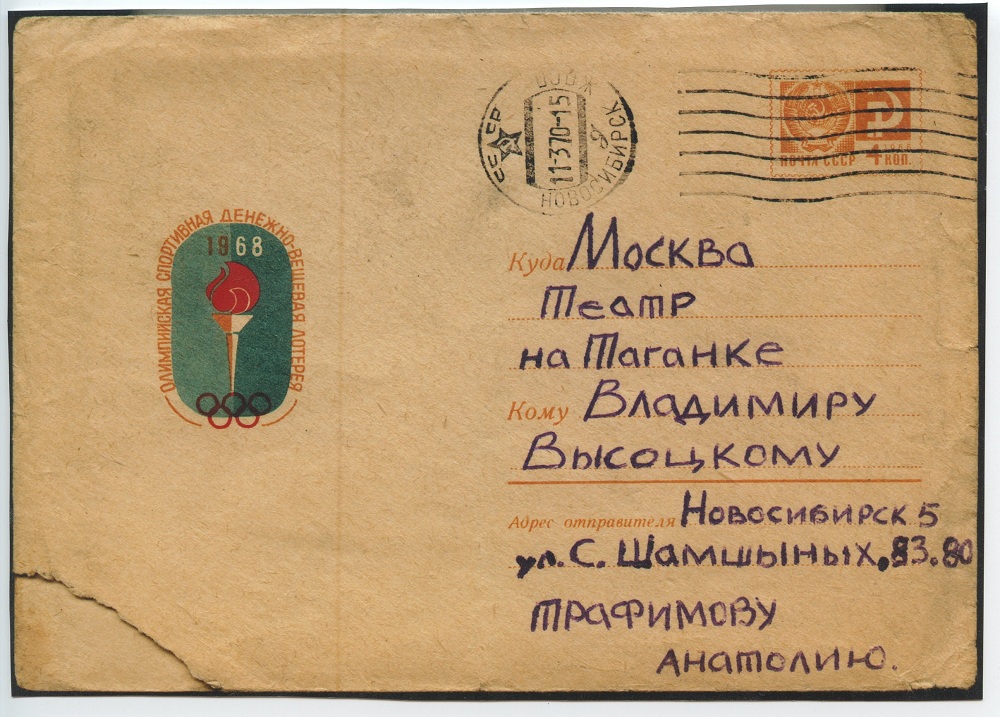 СССР
НОВОСИБИРСК
11-370-15
1966
ПОЧТА СССР 4 КОП.
ОЛИМПИЙСКАЯ СПОРТИВНАЯ ДЕНЕЖНО-ВЕЩЕВАЯ ЛОТЕРЕЯ
1968
Куда Москва
Театр
на Таганке
Кому Владимиру
Высоцкому
Адрес отправителя Новосибирск 5
ул. С. Шамшыных, 83.80
Трафимову
Анатолию.